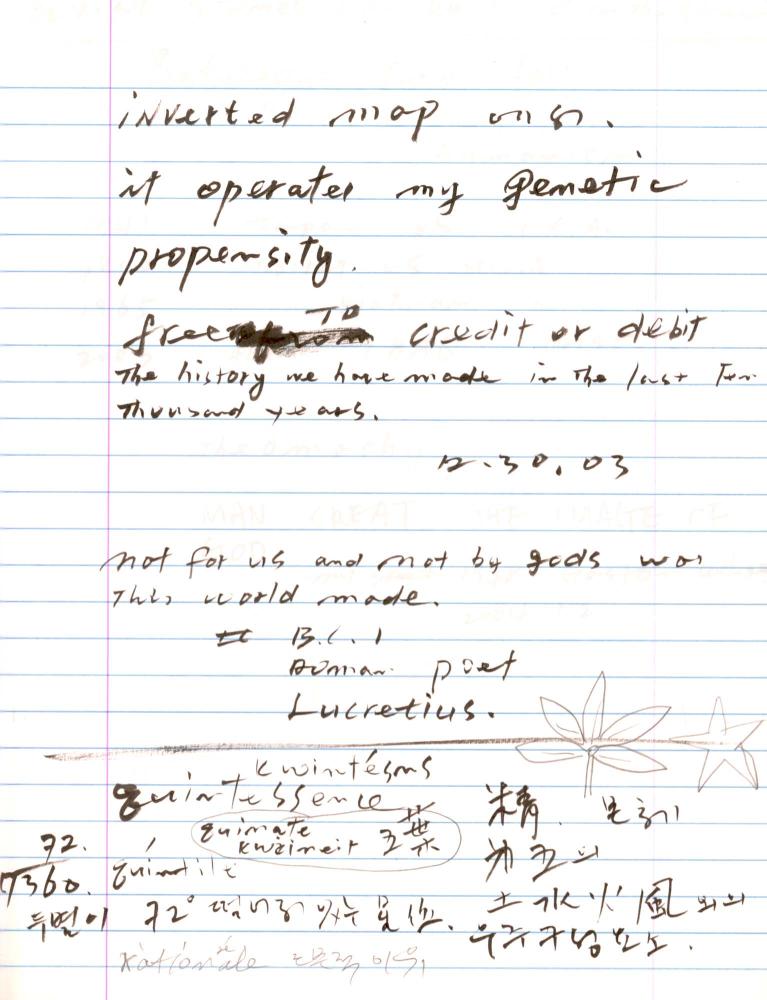 inverted map
it operates my genetic
propensity.
free TO credit or debit
The history we have made in the last Ten
Thousand years.
12.30.03
not for us and not by gods was
This world made.
B.C. 1
Roman poet
Lucretius.
kwintésns
quintessence
quinate
kwáineit 五葉
精.
72.
7360.
quintile
제五의
두별이 72° 떨어져 있는 星位.
土水火風 외의
우주구성요소.
rationale 근본적 이유